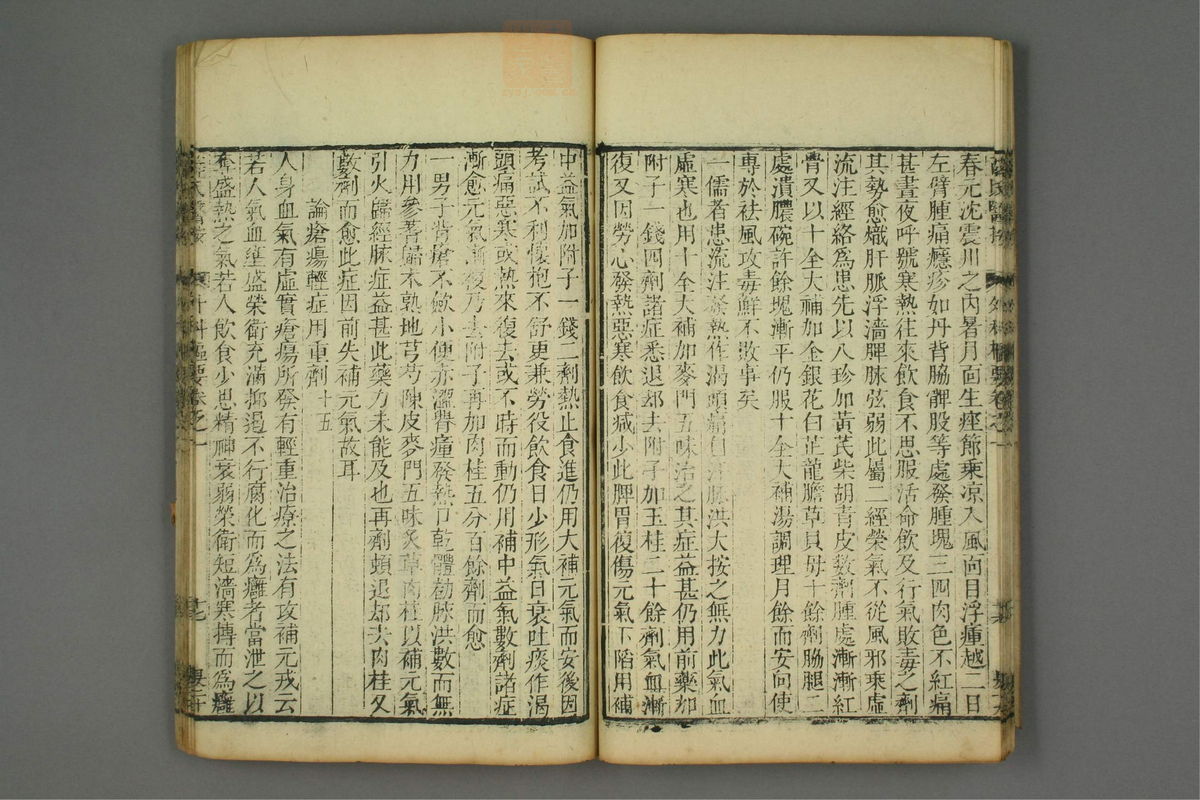 春元沈震川之內暑月面生痤癤乘凉入風向目浮瘇越二日
左臂腫痛癮疹如丹背脇髀股等處發腫塊三四肉色不紅痛
甚晝夜呼號寒熱往來飲食不思服活命飲及行氣敗毒之劑
其勢愈熾肝脈浮濇脾脉弦弱此屬二經榮氣不從風邪乘虛
流注經絡爲患先以八珍加黃芪柴胡青皮數劑腫處漸漸紅
骨又以十全大補加金銀花白芷龍膽草貝母十餘劑脇腿二
處潰膿碗許餘塊漸平仍服十全大補湯調理月餘而安向使
專於祛風攻毒鮮不敗事矣
一儒者患流注發熱作渴頭痛自汗脉洪大按之無力此氣血
虛寒也用十全大補加麥門五味治之其症益甚仍用前藥加
附子一錢四劑諸症悉退却去附子加玉桂二十餘劑氣血漸
復又因勞心發熱惡寒飲食減少此脾胃復傷元氣下陷用補
中益氣加附子一錢二劑熱止食進仍用大補元氣而安後因
考試不利懷抱不舒更兼勞役飲食日少形氣日衰吐痰作渴
頭痛惡寒或熱來復去或不時而動仍用補中益氣數劑諸症
漸愈元氣漸復乃去附子再加肉桂五分百餘劑而愈
一男子背瘡不斂小便亦澀臀瘇發熱口乾體倦脉洪數而無
力用參芪歸朮熟地芎芍陳皮麥門五味炙草肉桂以補元氣
引火歸經脉症益甚此藥力未能及也再劑頓退却去肉桂又
數劑而愈此症因前失補元氣故耳
論瘡瘍輕症用重劑十五
人身血氣有虛實瘡瘍所發有輕重治療之法有攻補元戎云
若人氣血壅盛榮衛充滿抑遏不行腐化而爲癰者當泄之以
奪盛熱之氣若人飲食少思精神衰弱榮衛短濇寒搏而爲癰